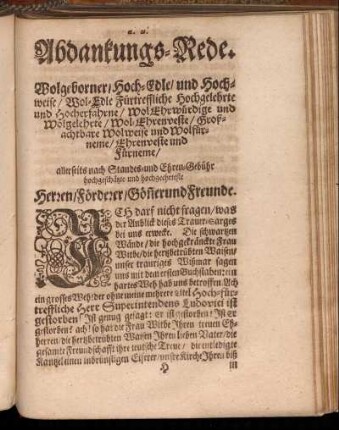 Abdankungs-Rede.
Wolgeborner / Hoch-Edle / und Hoch-
weise / Wol-Edle Fürtreffliche Hochgelehrte
und Hocherfahrne / Wol Ehrwürdige und
Wolgelehrte / Wol-Ehrenveste / Groß-
achtbare Wolweise und Wolfür-
neme / Ehrenveste und
Fürneme /
allerseits nach Standes-und Ehren-Gebühr
hochgeschätzte und hochgeehrteste
Herren / Förderer / Gönner und Freunde.
ICH darf nicht fragen / was
der Anblick dieses Trauer-Sarges
bei uns erwecke. Die schwartzen
Wände / die hochgekränckte Frau
Witbe / die hertzbetrübten Waisen /
unser trauriges Wißmar sagen
uns mit dem ersten Buchstaben: ein
hartes Weh hab uns betroffen. Ach
ein grosses Weh! der ohne meine mehrere Titel Hochfür-
treffliche Herr Superintendens Ludovici ist
gestorben! Ist genug gesagt: er ist gestorben! Ist er
gestorben? ach! so hat die Frau Witbe Ihren treuen Eh-
herren / die hertzbetrübte Waisen Ihren lieben Vater / die
gesamte Freundschafft ihre teutsche Treue / die entledigte
Kantzel einen inbrünstigen Eiferer / unsre Kirche Ihren biß
in